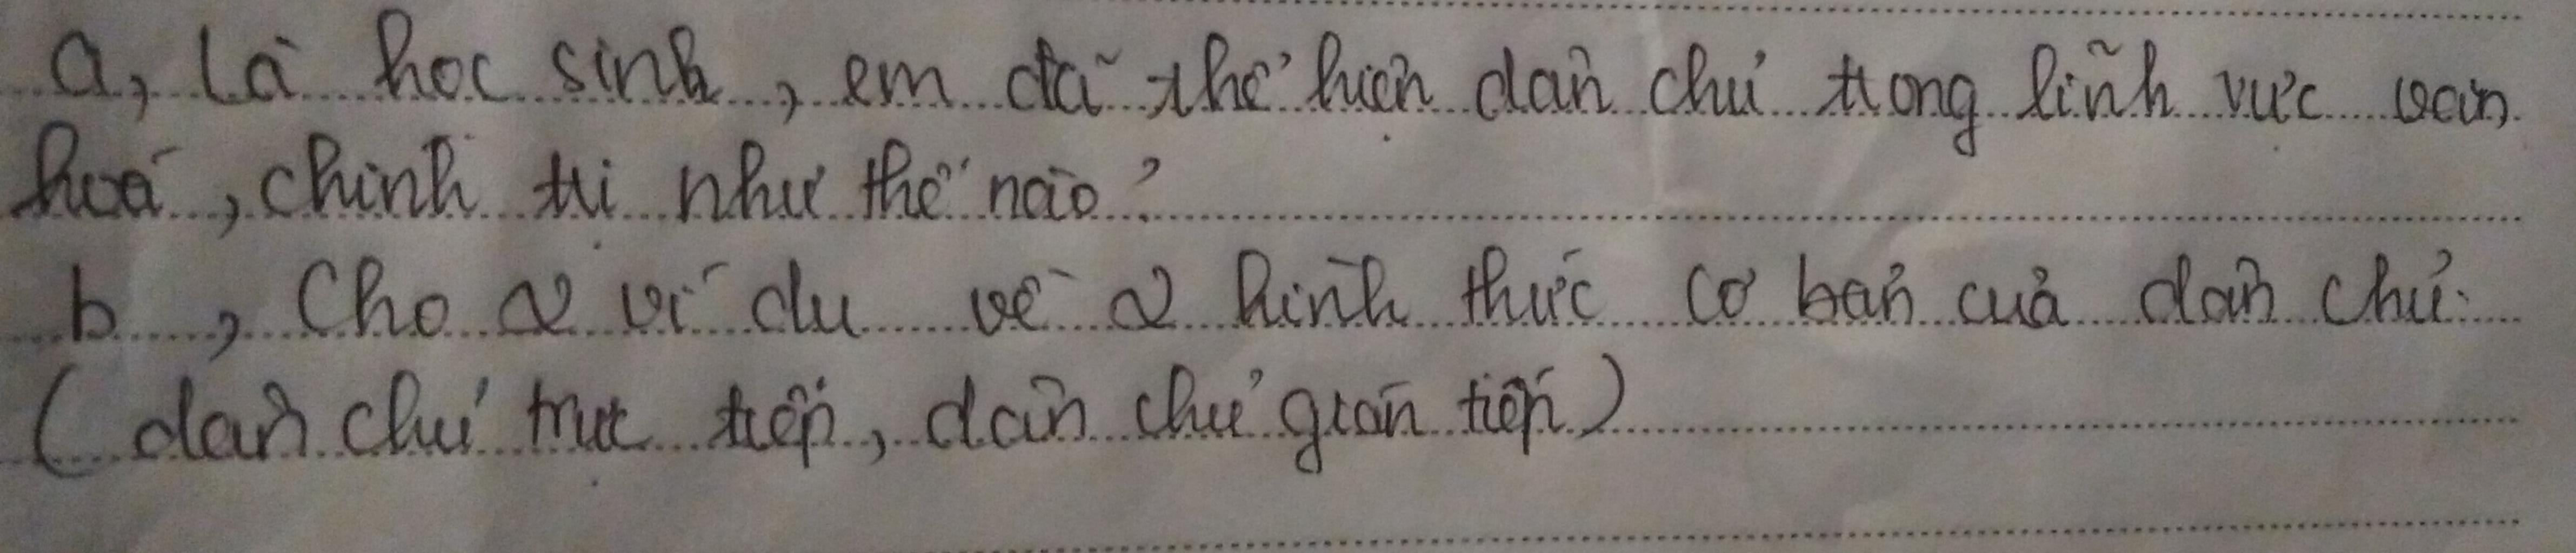 a, Là học sinh, em đã thể hiện dân chủ trong lĩnh vực văn
hoá, chính trị như thế nào?
b, Cho 2 ví dụ về 2 hình thức cơ bản của dân chủ.
(dân chủ trực tiếp, dân chủ gián tiếp)